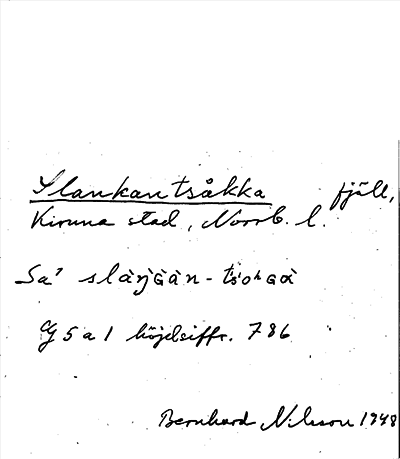 Slankantsåkka fjäll,
Kiruna stad, Norrb. l.
Sa' slàŋ̀ɢàn - tsoʰɢà
G 5 a 1 höjdsiffr. 786
Bernhard Nilsson 1948